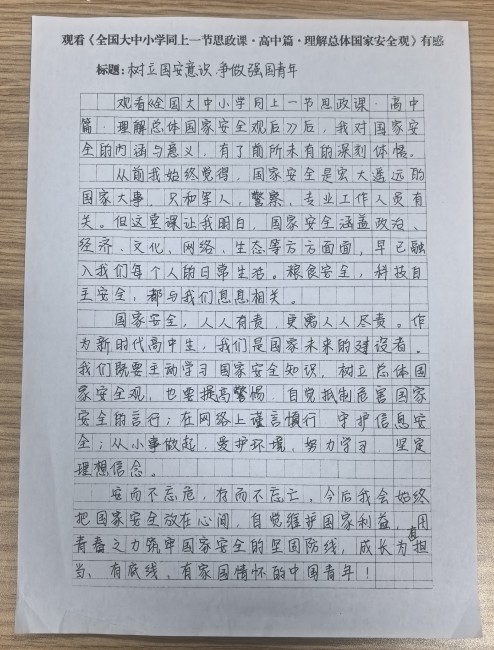 观看《全国大中小学同上一节思政课·高中篇·理解总体国家安全观》有感
标题：树立国安意识、争做强国青年
观看《全国大中小学同上一节思政课·高中
篇·理解总体国家安全观后》后，我对国家安
全的内涵与意义，有了前所未有的深刻体悟。
从前我始终觉得，国家安全是宏大遥远的
国家大事，只和军人，警察，专业工作人员有
关。但这堂课让我明白，国家安全涵盖政治、
经济、文化、网络、生态等方方面面，早已融
入我们每个人的日常生活。粮食安全，科技自
主安全，都与我们息息相关。
国家安全，人人有责，更需人人尽责。作
为新时代高中生，我们是国家未来的建设者。
我们既要主动学习国家安全知识，树立总体国
家安全观，也要提高警惕，自觉抵制危害国家
安全的言行；在网络上谨言慎行，守护信息安
全；从小事做起，爱护环境，努力学习，坚定
理想信念。
安而不忘危，存而不忘亡，今后我会始终
把国家安全放在心间，自觉维护国家利益，用
青春之力筑牢国家安全的坚固防线，成长为担
当、有底线、有家国情怀的中国青年！